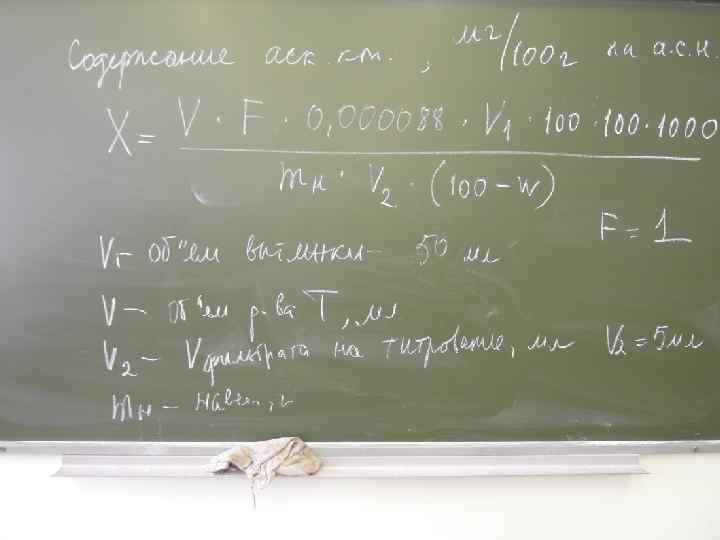 Содержание аск. к-ты, мг/100г на а.с.н.
X = V · F · 0,000088 · V1 · 100 · 100 · 1000
mн · V2 · (100 - W)
F = 1
V1 - объём вытяжки - 50 мл
V - объём р-ра Т, мл
V2 - Vфильтрата на титрование, мл V2 = 5 мл
mн - навеска, г